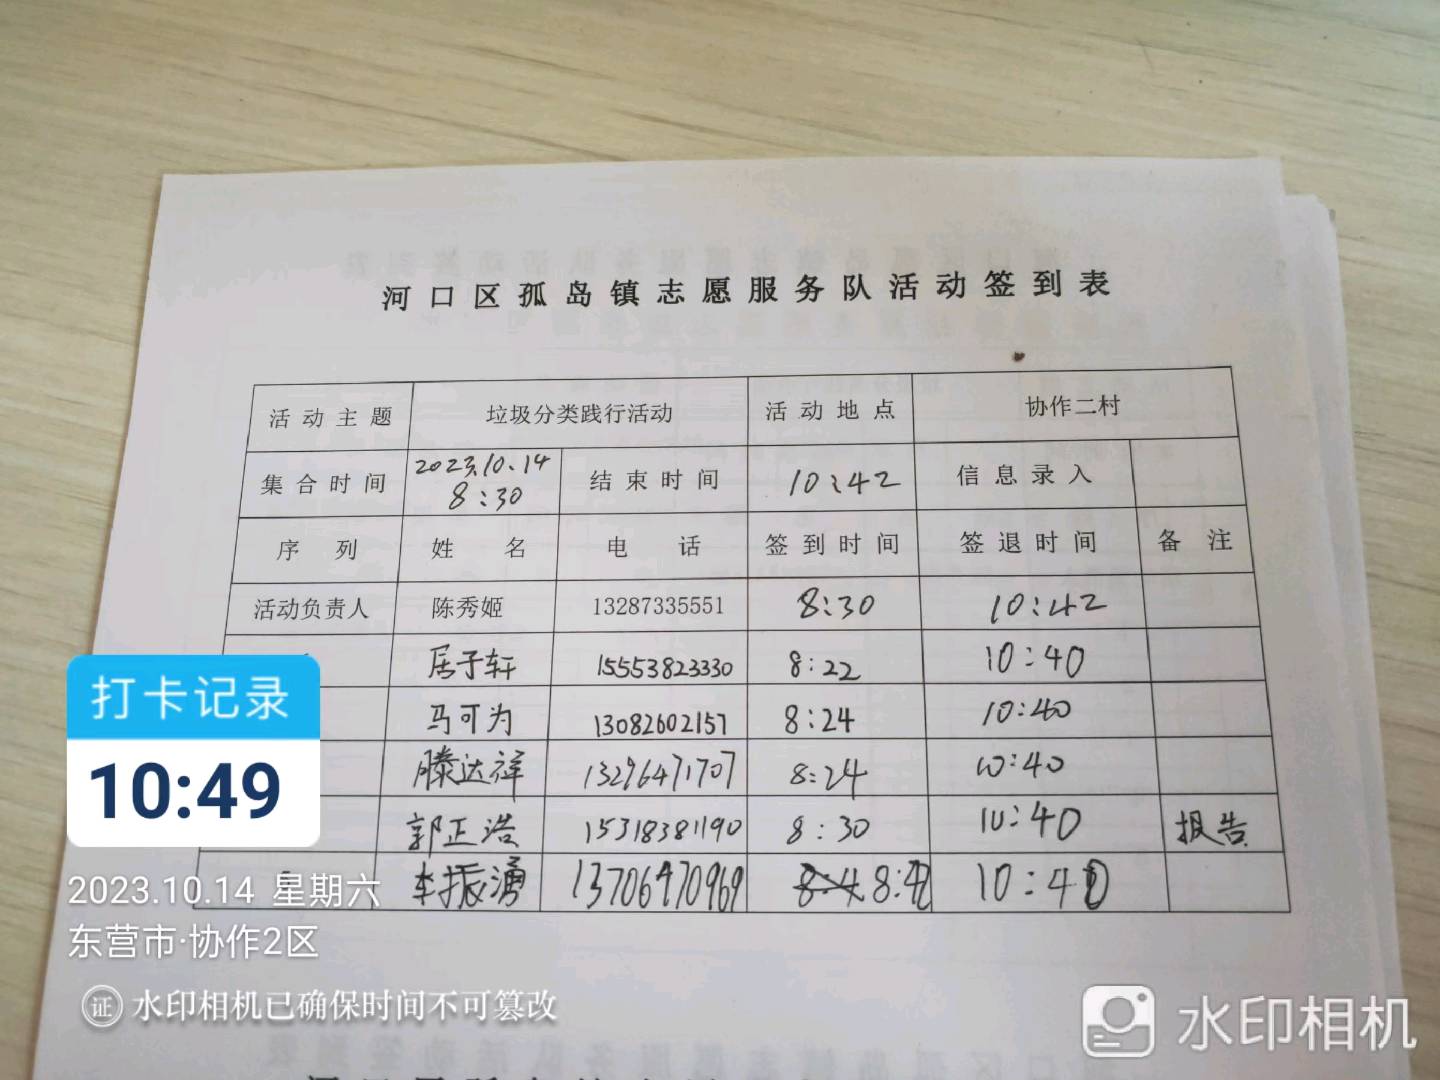 河口区孤岛镇志愿服务队活动签到表
活动主题 垃圾分类践行活动 活动地点 协作二村
集合时间 2023.10.14 8:30 结束时间 10:42 信息录入
序列 姓名 电话 签到时间 签退时间 备注
活动负责人 陈秀姬 13287335551 8:30 10:42
居子轩 15553823330 8:22 10:40
马可为 13082602157 8:24 10:40
滕达祥 13296471707 8:24 10:40
郭正浩 15318381190 8:30 10:40 报告
李振湧 13706470969 10:40
打卡记录
10:49
2023.10.14 星期六
东营市·协作2区
证 水印相机已确保时间不可篡改
水印相机